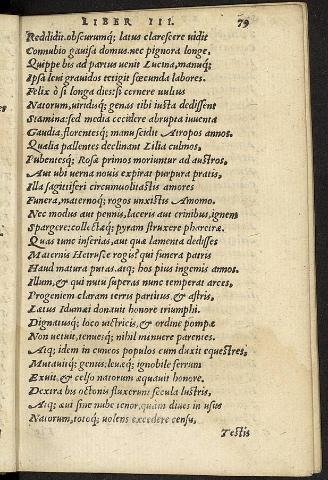 LIBER III. 79
Reddidit. obscurumq́; latus clarescere vidit
Connubio gauisa domus. nec pignora longe,
Quippe bis ad partus venit Lucina, manuq́;
Ipsa leui grauidos tetigit fœcunda labores.
Felix ô si longa dies: si cernere vultus
Natorum, viridisq́; genas tibi iusta dedissent
Stamina: sed media cecidere abrupta iuuenta
Gaudia, florentesq́; manu scidit Atropos annos.
Qualia pallentes declinant Lilia culmos,
Pubentesq́; Rosæ primos moriuntur ad austros,
Aut vbi verna nouis expirat purpura pratis,
Illa sagittiferi circumuolitastis amores
Funera, maternoq́; rogos vnxistis Amomo.
Nec modus aut pennis, laceris aut crinibus, ignem
Spargere: collectaq́; pyram struxere pharetræ.
Quas tunc inferias, aut quæ lamenta dedisses
Maternis Hetrusce rogis? qui funera patris
Haud matura putas. atq; hos pius ingemis annos.
Illum, & qui nutu superas nunc temperat arces,
Progeniem claram terris partitus, & astris,
Lætus Idumæi donauit honore triumphi.
Dignatusq́; loco victricis, & ordine pompæ
Non vetuit, tenuesq́; nihil minuere parentes.
Atq; idem in cuneos populos cum duxit equestres,
Mutauitq́; genus: leuæq́; ignobile ferrum
Exuit, & celso natorum æquauit honore.
Dextra bis octonis fluxerunt secula lustris,
Atq; æui sine nube tenor, quam diues in vsus
Natorum, totoq́; volens excedere censu,
Testis